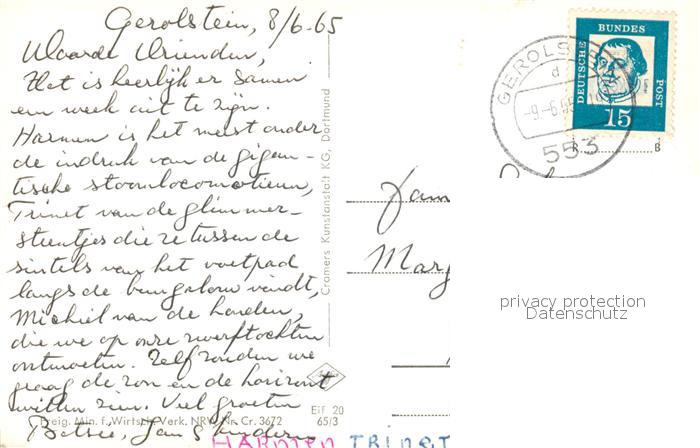 Gerolstein, 8/6-65
Waarde Vrienden,
Het is heerlijk er samen
een week uit te zijn.
Harmen is het meest onder
de indruk van de gigan-
tische stoomlocomotieven,
Trinet van de glimmer-
steentjes die ze tussen de
sintels van het voetpad
langs de bungalow vindt,
Michiel van de honden,
die we op onze zwerftochten
ontmoeten. Zelf zouden we
graag de zon en de horizont
willen zien. Veel groeten
Betsie, Jan & kinderen
HARMEN TRINET
Freig. Min. f. Wirtsch. Verk. NRW Nr. Cr. 3672
Eif 20
65/3
Cramers Kunstanstalt KG, Dortmund
GEROLSTEIN
d
-9.-6.65
553
DEUTSCHE
BUNDES
POST
15
Fam
Marg
privacy protection
Datenschutz